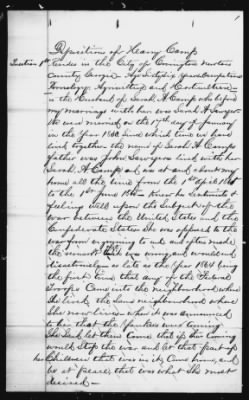 Deposition of Henry Camp
Question 1st
Resides in the City of Covington Newton
County Georgia. Age Sixty six years Occupation
Farming and
is the Husband of Sarah A. Camp who before
my marriage with her was Sarah A. Sawyers
We were married on the 17th day of January
in the Year 1866 Since which time we have
lived together. the name of Sarah A. Camps
father was John Sawyers lived with her
Sarah A. Camp and was at and about my
home all the time from the 1st April 1861
to the 1st June 1865. Knew her
feeling well upon the Subject of the
war between the United States and the
Confederate States She was opposed to the
war from beginning to end and often made
the remark that it was wrong and would end
disastrously as late as the Year 1864 being
the first time that any of the Federal
Troops Came into the Neighborhood where
She lived, the Same neighborhood where
She now lives when it was announced
to her that the Yankees were coming
She Said let them Come that if their coming
would Stop the war and let that part of
her Children that was in its Come home and
be at peace that was what She most
desired —